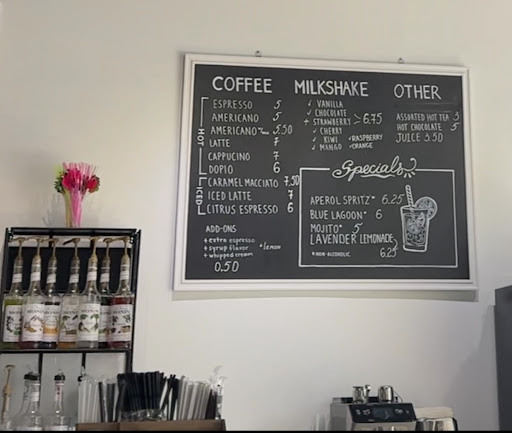 COFFEE
HOT
ESPRESSO 5
AMERICANO 5
AMERICANO 5.50
LATTE 7
CAPPUCINO 7
DOPIO 6
ICED
CARAMEL MACCIATO 7.50
ICED LATTE 7
CITRUS ESPRESSO 6
ADD-ONS
+ extra espresso
+ syrup flavor + lemon
+ whipped cream
0.50
MILKSHAKE
✓ VANILLA
✓ CHOCOLATE
+ STRAWBERRY > 6.75
✓ CHERRY
✓ KIWI +RASPBERRY
✓ MANGO +ORANGE
OTHER
ASSORTED HOT TEA 3
HOT CHOCOLATE 5
JUICE 3.50
Specials
APEROL SPRITZ* 6.25
BLUE LAGOON* 6
MOJITO* 5
LAVENDER LEMONADE 6.25
*NON-ALCOHOLIC